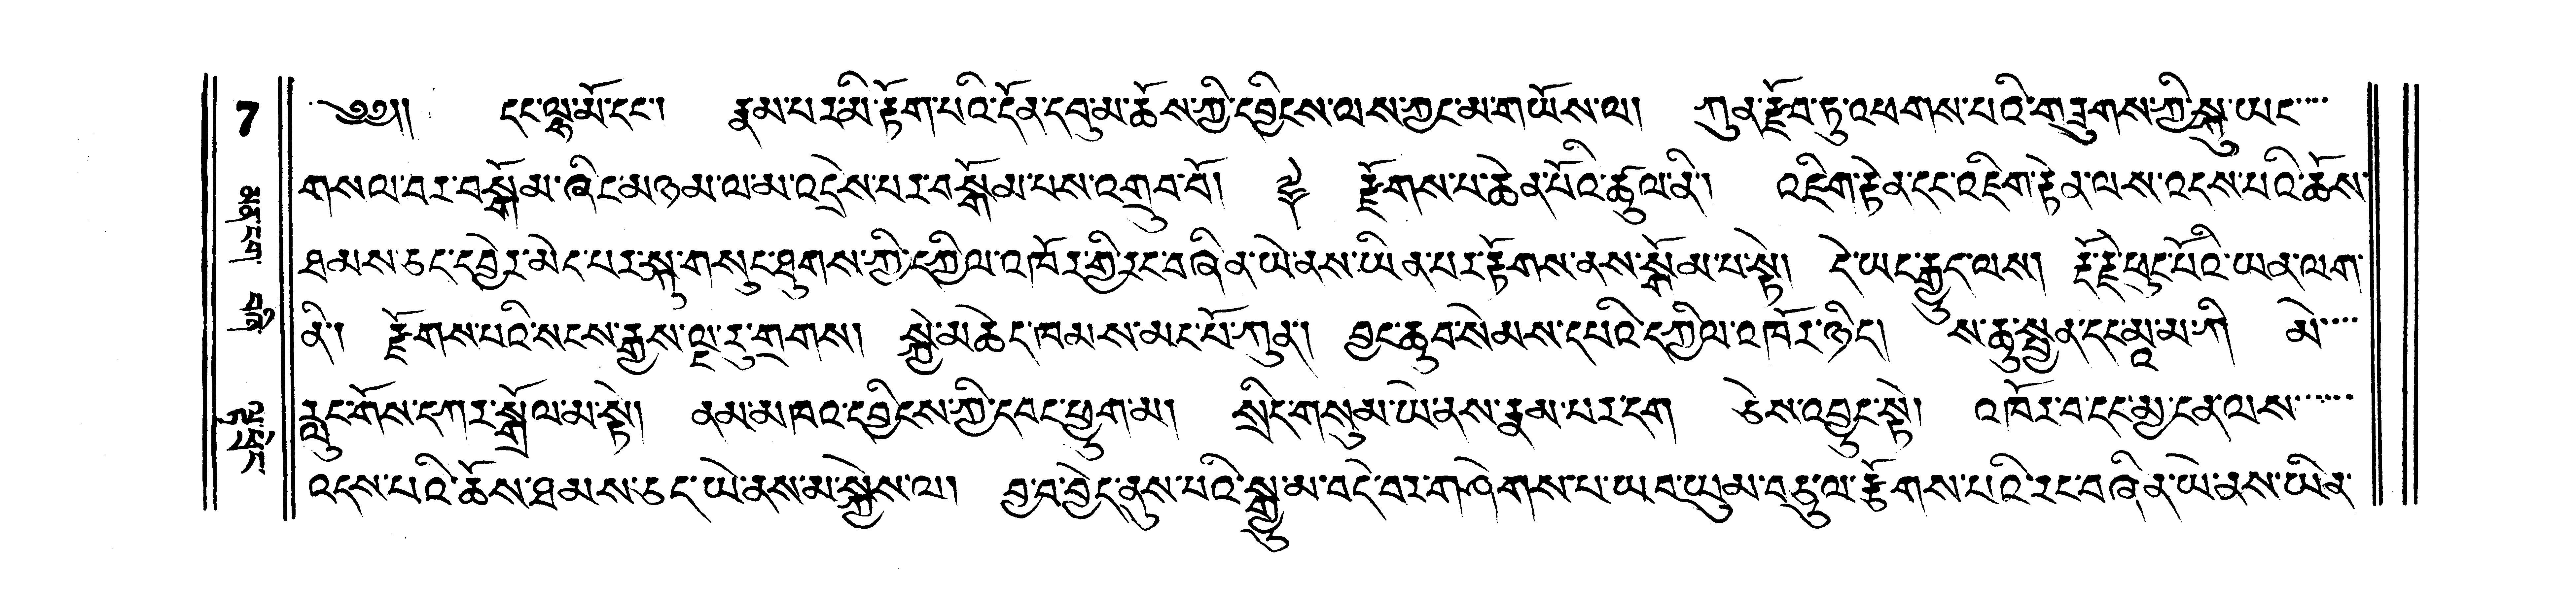 7
༄༅། །དང་ལྷ་མོ་དང་། རྣམ་པར་མི་རྟོག་པའི་དོན་དབུ་མ་ཆོས་ཀྱི་དབྱིངས་ལས་ཀྱང་མ་གཡོས་ལ། ཀུན་རྫོབ་ཏུ་འཕགས་པའི་གཟུགས་ཀྱི་སྐུ་ཡང
གསལ་བར་བསྒོམ་ཞིང་མཉམ་ལ་མ་འདྲེས་པར་བསྒོམ་པས་འགྲུབ་བོ། རྫོགས་པ་ཆེན་པོའི་ཚུལ་ནི། འཇིག་རྟེན་དང་འཇིག་རྟེན་ལས་འདས་པའི་ཆོས་
ཐམས་ཅད་དབྱེར་མེད་པར་སྐུ་གསུང་ཐུགས་ཀྱི་དཀྱིལ་འཁོར་གྱི་རང་བཞིན་ཡེ་ནས་ཡིན་པར་རྟོགས་ནས་སྒོམ་པ་སྟེ། དེ་ཡང་རྒྱུད་ལས། རྡོ་རྗེ་ཕུང་པོའི་ཡན་ལག་
ནི། རྫོགས་པའི་སངས་རྒྱས་ལྔ་རུ་གྲགས། སྐྱེ་མཆེད་ཁམས་མང་པོ་ཀུན། བྱང་ཆུབ་སེམས་དཔའི་དཀྱིལ་འཁོར་ཉིད། ས་ཆུ་སྤྱན་དང་མཱ་མ་ཀི མེ
རླུང་གོས་དཀར་སྒྲོལ་མ་སྟེ། ནམ་མཁའ་དབྱིངས་ཀྱི་དབང་ཕྱུག་མ། སྲིད་གསུམ་ཡེ་ནས་རྣམ་པར་དག ཅེས་འབྱུང་སྟེ། འཁོར་བ་དང་མྱ་ངན་ལས
འདས་པའི་ཆོས་ཐམས་ཅད་ཡེ་ནས་མ་སྐྱེས་ལ། བྱ་བ་བྱེད་ནུས་པའི་སྒྱུ་མ་བདེ་བར་གཤེགས་པ་ཡབ་ཡུམ་བཅུ་ལ་རྟོགས་པའི་རང་བཞིན་ཡེ་ནས་ཡིན་